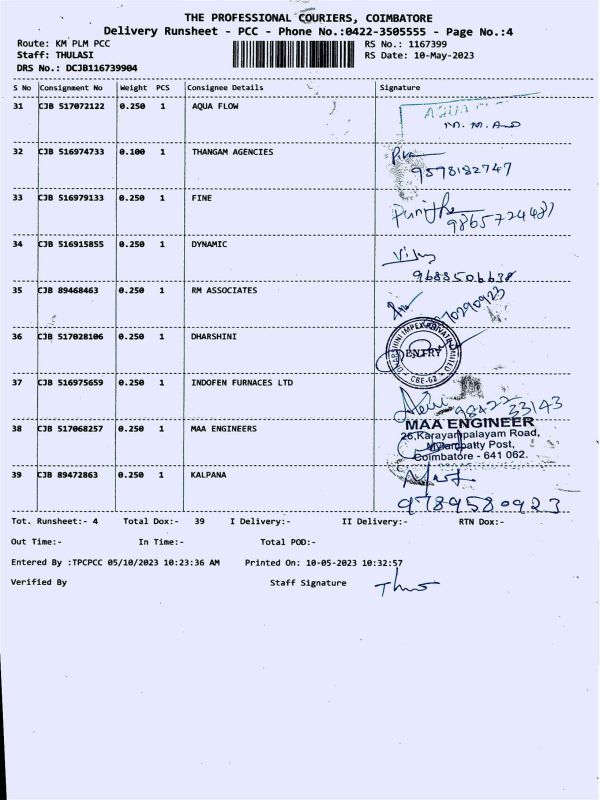 THE PROFESSIONAL COURIERS, COIMBATORE
Delivery Runsheet - PCC - Phone No.:0422-3505555 - Page No.:4
Route: KM PLM PCC RS No.: 1167399
Staff: THULASI RS Date: 10-May-2023
DRS No.: DCJB116739904
S No Consignment No Weight PCS Consignee Details Signature
31 CJB 517072122 0.250 1 AQUA FLOW
32 CJB 516974733 0.100 1 THANGAM AGENCIES
9578182747
33 CJB 516979133 0.250 1 FINE
9865724487
34 CJB 516915855 0.250 1 DYNAMIC
9688506638
35 CJB 89468463 0.250 1 RM ASSOCIATES
36 CJB 517028106 0.250 1 DHARSHINI
DHARSHINI IMPEX PRIVATE LIMITED
ENTRY
CBE-62
37 CJB 516975659 0.250 1 INDOFEN FURNACES LTD
9842233143
38 CJB 517068257 0.250 1 MAA ENGINEERS
MAA ENGINEER
26,Karayampalayam Road,
Mylampatty Post,
Coimbatore - 641 062.
39 CJB 89472863 0.250 1 KALPANA
9789580923
Tot. Runsheet:- 4 Total Dox:- 39 I Delivery:- II Delivery:- RTN Dox:-
Out Time:- In Time:- Total POD:-
Entered By :TPCPCC 05/10/2023 10:23:36 AM Printed On: 10-05-2023 10:32:57
Verified By Staff Signature